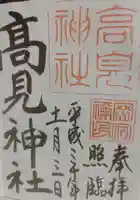 奉拝
照臨
平成三十年
十一月三日
高見神社
高見
神社